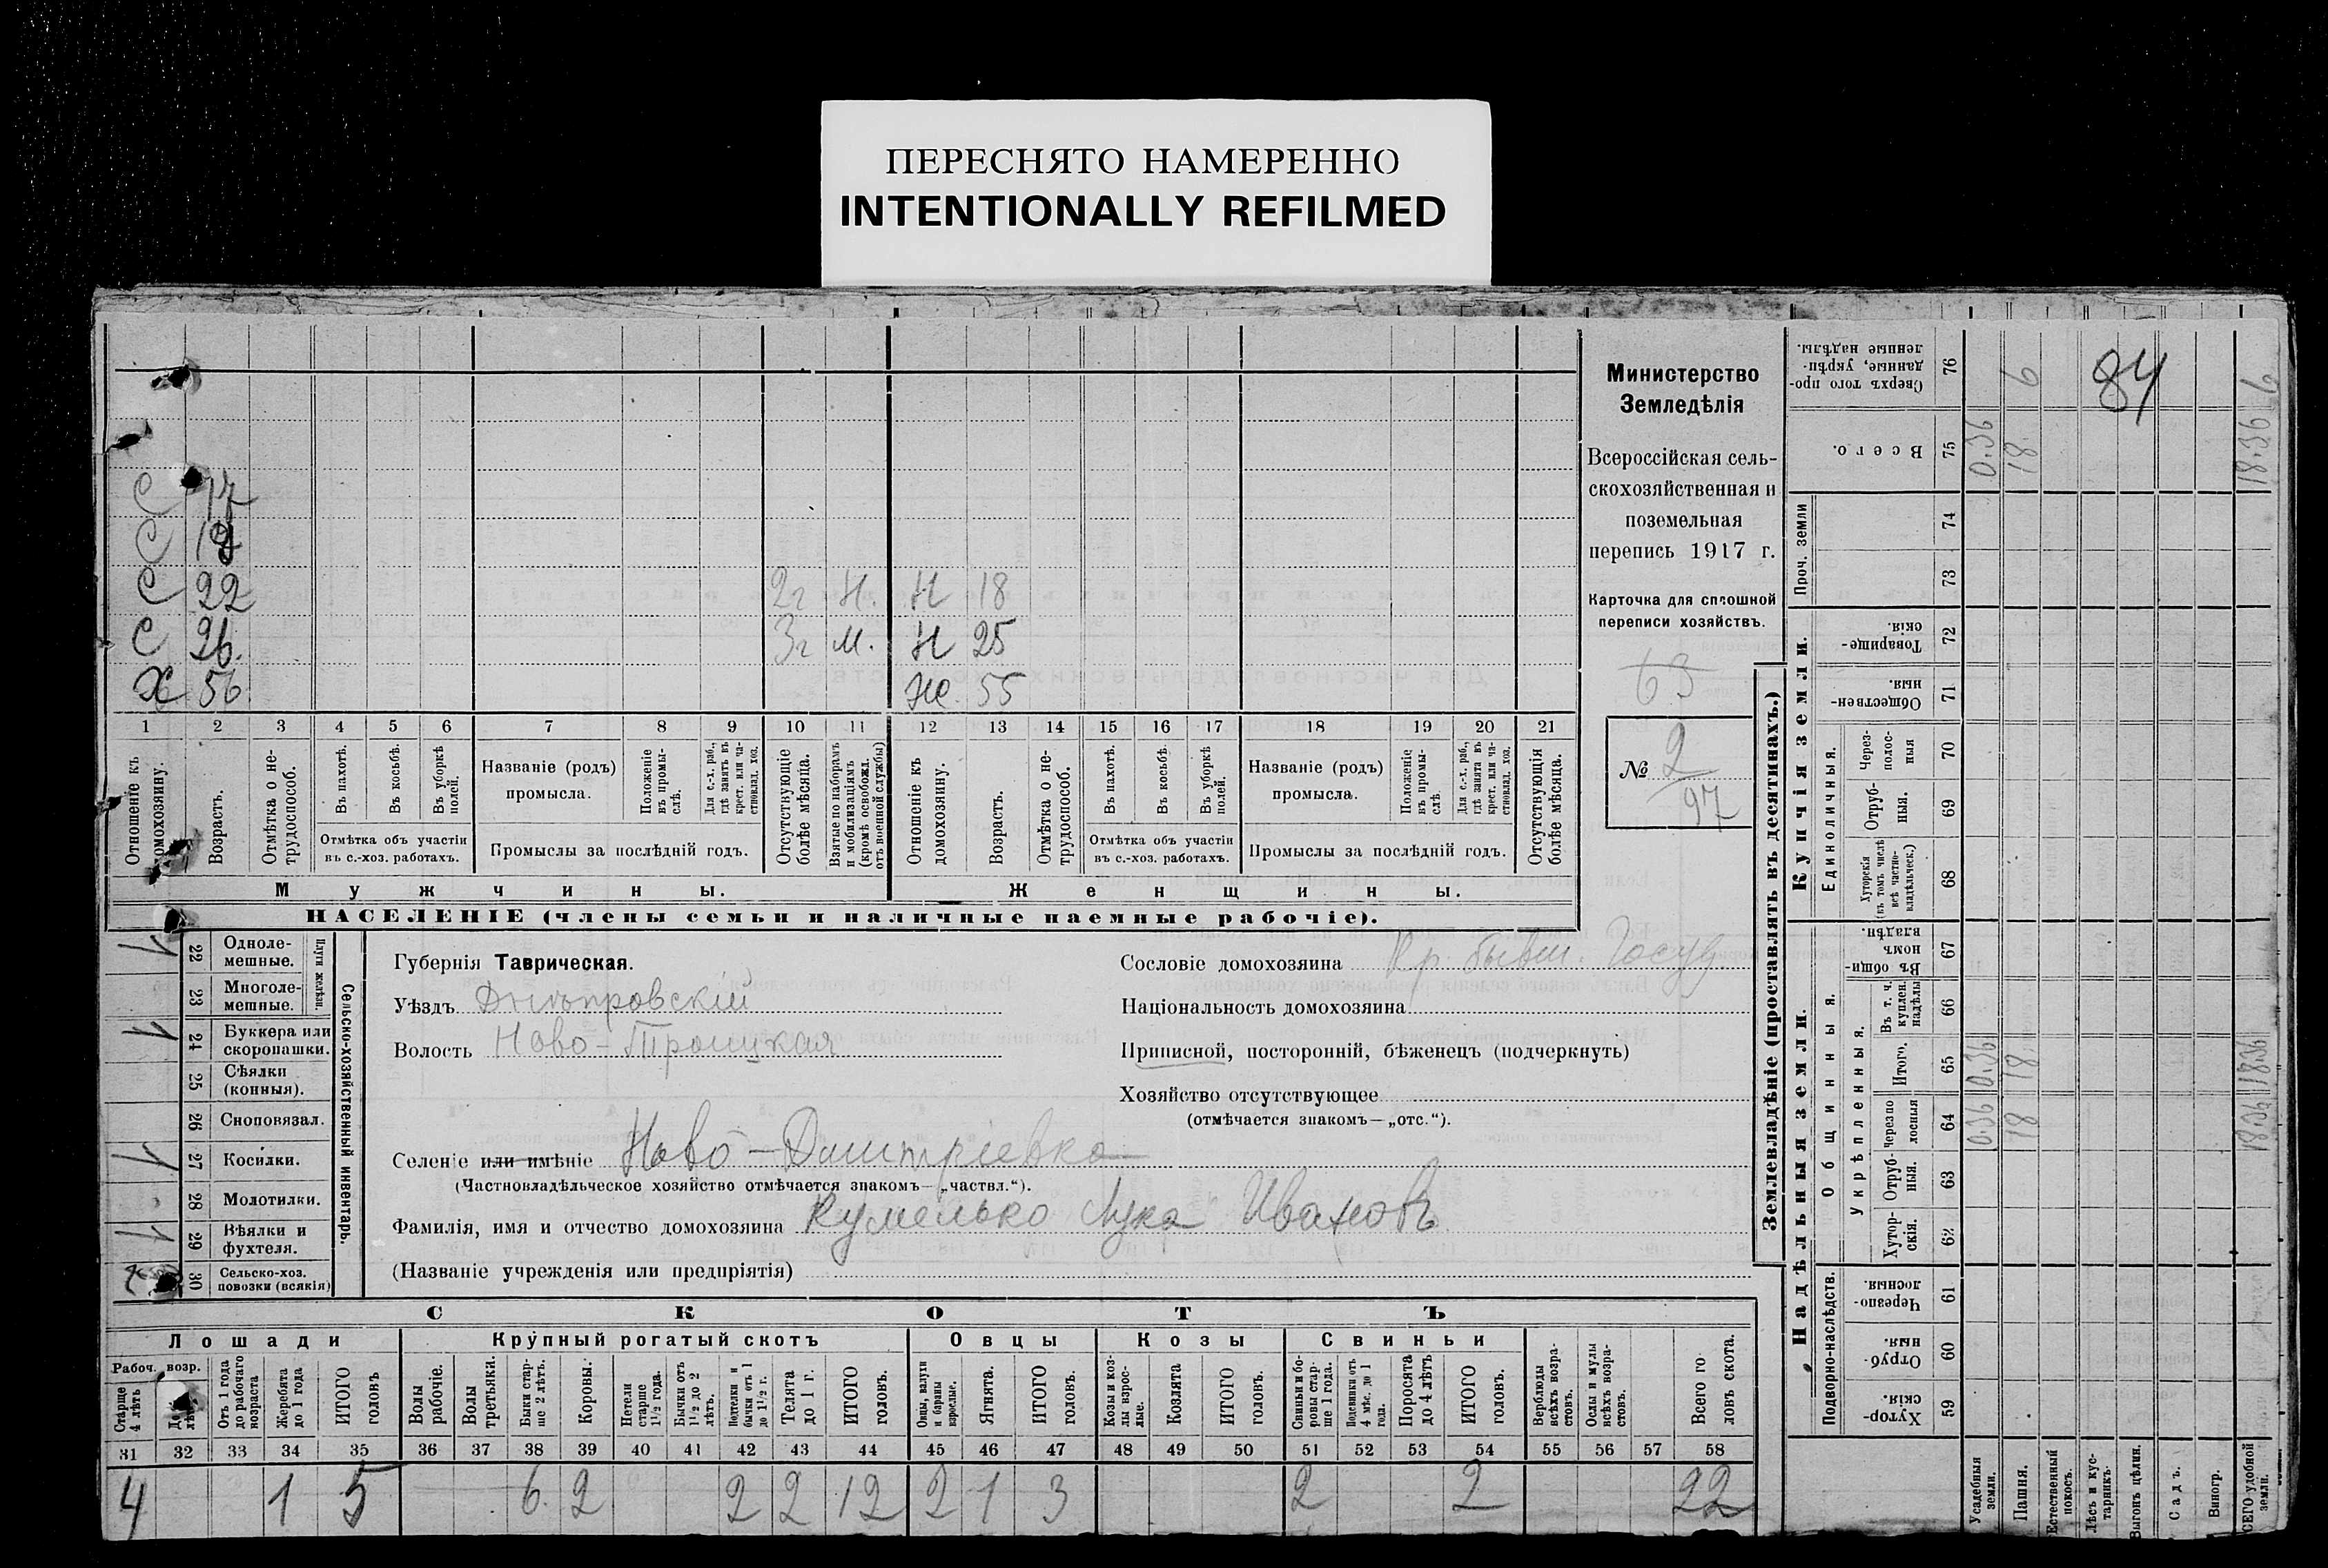 ПЕРЕСНЯТО НАМЕРЕННО
INTENTIONALLY REFILMED
С 17
С
С 22 2г Н. Н 18
С 26. 3г М. Н 25
Х 56. Ж. 55
1 2 3 4 5 6 7 8 9 10 11 12 13 14 15 16 17 18 19 20 21
Отношеніе къ домохозяину.
Возрастъ.
Отмѣтка о нетрудоспособ.
Въ пахотѣ.
Въ косьбѣ.
Въ уборкѣ полей.
Отмѣтка объ участіи въ с.-хоз. работахъ.
Названіе (родъ) промысла.
Положеніе въ промыслѣ.
Для с.-х. раб., гдѣ занятъ въ крест. или частновлад. хоз.
Промыслы за послѣдній годъ.
Отсутствующіе болѣе мѣсяца.
Взятые по наборамъ и мобилизаціямъ (кромѣ освобожд. отъ военной службы)
Отношеніе къ домохозяину.
Возрастъ.
Отмѣтка о нетрудоспособ.
Въ пахотѣ.
Въ косьбѣ.
Въ уборкѣ полей.
Отмѣтка объ участіи въ с.-хоз. работахъ.
Названіе (родъ) промысла.
Положеніе въ промыслѣ.
Для с.-х. раб., гдѣ занята въ крест. или частновлад. хоз.
Промыслы за послѣдній годъ.
Отсутствующія болѣе мѣсяца.
Мужчины. Женщины.
НАСЕЛЕНІЕ (члены семьи и наличные наемные рабочіе).
Министерство
Земледѣлія
Всероссійская сель-
скохозяйственная и
поземельная
перепись 1917 г.
Карточка для сплошной
переписи хозяйствъ.
63
№ 2
97
1 22 Однолемешные.
23 Многолемешные.
Плуги желѣзн.
1 24 Буккера или скоропашки.
25 Сѣялки (конныя).
26 Сноповязал.
1 27 Косилки.
28 Молотилки.
1 29 Вѣялки и фухтеля.
30 Сельско-хоз. повозки (всякія)
Сельско-хозяйственный инвентарь.
Губернія Таврическая.
Уѣздъ Днѣпровскій
Волость Ново-Троицкая
Сословіе домохозяина Кр. бывш. Госуд
Національность домохозяина
Приписной, посторонній, бѣженецъ (подчеркнуть)
Хозяйство отсутствующее
(отмѣчается знакомъ—„отс.“).
Селеніе или имѣніе Ново-Дмитріевка
(Частновладѣльческое хозяйство отмѣчается знакомъ—„частвл.“).
Фамилія, имя и отчество домохозяина Кумейько Лука Ивановъ
(Названіе учрежденія или предпріятія)
СКОТЪ
Лошади Крупный рогатый скотъ Овцы Козы Свиньи
Рабоч. возр.
Старше 4 лѣтъ
Отъ 1 года до рабочаго возраста
Жеребята до 1 года
ИТОГО головъ
Волы рабочіе.
Волы третьяки.
Быки старше 2 лѣтъ.
Коровы.
Нетели старше 1½ года.
Бычки отъ 1½ до 2 лѣтъ.
Подтелки и бычки отъ 1 до 1½ г.
Телята до 1 г.
ИТОГО головъ.
Овцы, валухи и бараны взрослые.
Ягнята.
ИТОГО головъ.
Козы и козлы взрослые.
Козлята
ИТОГО головъ.
Свиньи и боровы старше 1 года.
Подсвинки отъ 4 мѣс. до 1 года.
Поросята до 4 лѣтъ
ИТОГО головъ.
Верблюды всѣхъ возрастовъ.
Ослы и мулы всѣхъ возрастовъ.
Всего головъ скота.
31 32 33 34 35 36 37 38 39 40 41 42 43 44 45 46 47 48 49 50 51 52 53 54 55 56 57 58
4 1 5 6 2 2 2 12 2 1 3 2 2 22
Землевладѣніе (проставлять въ десятинахъ.)
Сверхъ того проданные, укрѣпленные надѣлы. 76 6 84 6
Всего. 75 0.36 18 18.36
Проч. земли 74
73
Купчія земли.
Товарищескія. 72
Общественныя. 71
Единоличныя.
Черезполосныя 70
Отрубныя. 69
Хуторскія (въ томъ числѣ всѣ частновладѣльческ.) 68
Надѣльныя земли.
Общинныя.
Въ общинномъ владѣн. 67
Укрѣпленныя.
Въ т. ч. куплен. надѣлы 66
Итого. 65 0.36 18 18.36
Черезполосныя 64 0.36 18 18.36
Отрубныя. 63
Хуторскія. 62
Подворно-наслѣдств.
Черезполосныя. 61
Отрубныя. 60
Хуторскія. 59
Усадебныя земли.
Пашня.
Естественный покосъ.
Лѣсъ и кустарникъ.
Выгонъ цѣлин.
Садъ.
Виногр.
ВСЕГО удобной земли.